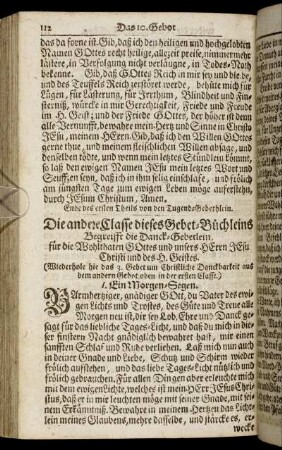 112 Das 10. Gebot
das da forne ist. Gib, daß ich den heiligen und hochgelobten
Namen GOttes recht heilige, allezeit preise, nimmermehr
lästere, in Verfolgung nicht verläugne, in Todes-Noth
bekenne. Gib, daß GOttes Reich in mir sey und bleibe,
und des Teuffels Reich zerstöret werde, behüte mich für
Lügen, für Lästerung, für Irrthum, Blindheit und Fin-
sterniß, würcke in mir Gerechtigkeit, Friede und Freude
im H. Geist; und der Friede GOttes, der höher ist denn
alle Vernunfft, bewahre mein Hertz und Sinne in Christo
JEsu, meinem HErrn. Gib, daß ich den Willen GOttes
gerne thue, und meinem fleischlichen Willen absage, und
denselben tödte, und wenn mein letztes Stündlein kommt,
so laß den ewigen Namen JEsu mein letztes Wort und
Seufftzen seyn, daß ich in ihm selig einschlafe, und frölich
am jüngsten Tage zum ewigen Leben möge auferstehn,
durch JEsum Christum, Amen.
Ende des ersten Theils von den Tugend-Gebethlein.
Die andere Classe dieses Gebet-Büchleins
Begreifft die Danck-Gebetlein,
für die Wohlthaten GOttes und unsers HErrn JEsu
Christi und des H. Geistes.
(Wiederhole hie das 3. Gebet um Christliche Danckbarkeit aus
dem andern Gebot oben in der ersten Classe.)
1. Ein Morgen-Segen.
BArmhertziger, gnädiger GOtt, du Vater des ewi-
gen Lichts und Trostes, des Güte und Treue alle
Morgen neu ist, dir sey Lob, Ehre und Danck ge-
sagt für das liebliche Tages-Licht, und daß du mich in die-
ser finstern Nacht gnädiglich bewahret hast, mir einen
sanfften Schlaf und Ruhe verliehen. Laß mich nun auch
in deiner Gnade und Liebe, Schutz und Schirm wieder
frölich aufstehen, und das liebe Tages-Licht nützlich und
frölich gebrauchen. Für allen Dingen aber erleuchte mich
mit dem ewigen Lichte, welches ist mein HErr JEsus Chri-
stus, daß er in mir leuchten möge mit seiner Gnade, mit sei-
nem Erkäntniß. Bewahre in meinem Hertzen das Licht-
lein meines Glaubens, mehre dasselbe, und stärcke es, er-
wecke